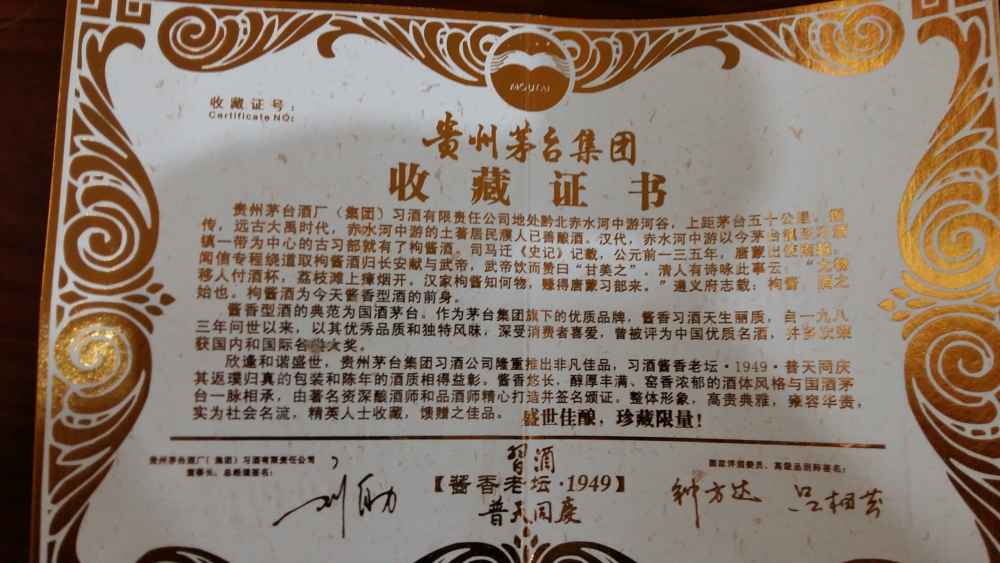 MOUTAI
收藏证号：
Certificate NO:
贵州茅台集团
收藏证书
贵州茅台酒厂（集团）习酒有限责任公司地处黔北赤水河中游河谷，上距茅台五十公里。据
传，远古大禹时代，赤水河中游的土著居民濮人已善酿酒。汉代，赤水河中游以今茅台
镇一带为中心的古习部就有了枸酱酒。司马迁《史记》记载，公元前一三五年，唐蒙出使
闻信专程绕道取枸酱酒归长安献与武帝，武帝饮而赞曰“甘美之”。清人有诗咏此事云，
移人付酒杯，荔枝滩上瘴烟开。汉家枸酱知何物，赚得唐蒙习部来。”遵义府志载：枸酱，酒之
始也。枸酱酒为今天酱香型酒的前身。
酱香型酒的典范为国酒茅台。作为茅台集团旗下的优质品牌，酱香习酒天生丽质，自一九八
三年问世以来，以其优秀品质和独特风味，深受消费者喜爱，曾被评为中国优质名酒，并多次荣
获国内和国际各类大奖。
欣逢和谐盛世，贵州茅台集团习酒公司隆重推出非凡佳品，习酒酱香老坛·1949·普天同庆
其返璞归真的包装和陈年的酒质相得益彰。酱香悠长，醇厚丰满、窖香浓郁的酒体风格与国酒茅
台一脉相承，由著名资深酿酒师和品酒师精心打造并签名颁证。整体形象，高贵典雅，雍容华贵，
实为社会名流，精英人士收藏，馈赠之佳品。 盛世佳酿，珍藏限量！
贵州茅台酒厂（集团）习酒有限责任公司
董事长、总经理签名：
習酒
【酱香老坛·1949】
普天同庆
国家评酒委员、高级品酒师签名：
钟方达 吕相芬